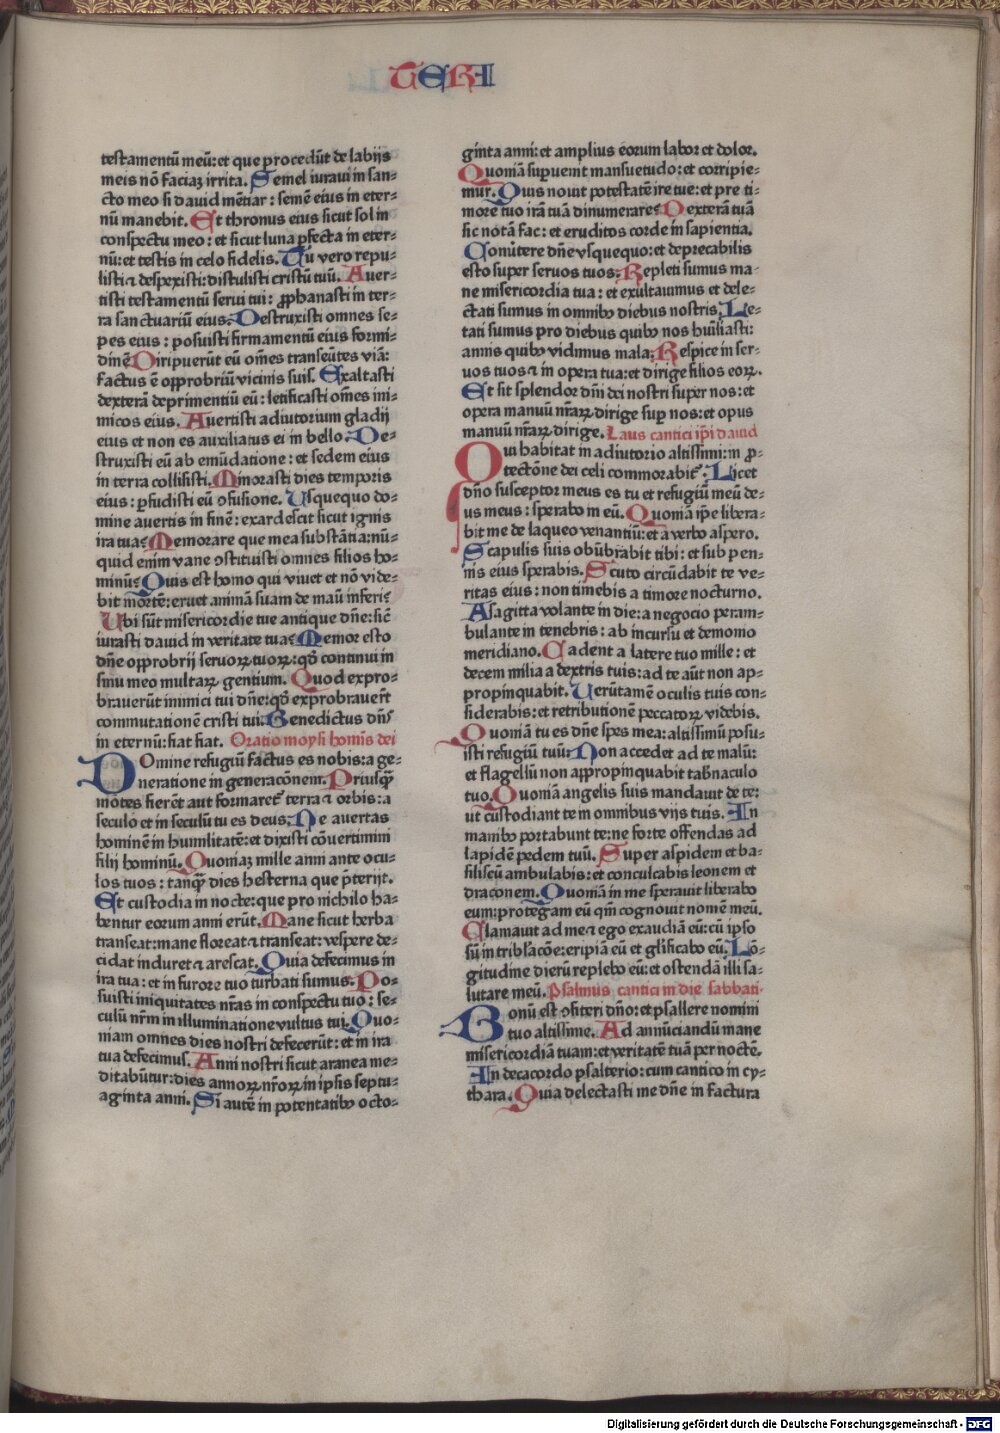 TERI
testamentū meū: et que procedūt de labijs
meis nō faciaꝫ irrita. Semel iuravi in san-
cto meo si david mētiar: semē eius in eter-
nū manebit. Et thronus eius sicut sol in
conspectu meo: et sicut luna ꝑfecta in eter-
nū: et testis in celo fidelis. Tū vero repu-
listi ⁊ despexisti: distulisti cristū tuū. Aver-
tisti testamentū servi tui: ꝓphanasti in ter-
ra sanctuariū eius. Destruxisti omnes se-
pes eius: posuisti firmamentū eius formi-
dinē. Diripuerūt eū om̄es transeūtes viā:
factus ē opprobriū vicinis suis. Exaltasti
dexterā deprimentiū eū: letificasti om̄es ini-
micos eius. Avertisti adiutorium gladij
eius et non es auxiliatus ei in bello. De-
struxisti eū ab emūdatione: et sedem eius
in terra collisisti. Minorasti dies temporis
eius: ꝑfudisti eū ꝯfusione. Usquequo do-
mine avertis in finē: exardescit sicut ignis
ira tua? Memorare que mea substātia: nū-
quid enim vane ꝯstituisti omnes filios ho-
minū? Quis est homo qui vivet et nō vide-
bit mortē: eruet animā suam de manū inferi?
Ubi sūt misericordie tue antique dn̄e: sic̄
iurasti david in veritate tua? Memor esto
dn̄e opprobrij servoꝝ tuoꝝ: qd̄ continui in
sinu meo multaꝝ gentium. Quod expro-
braverūt inimici tui dn̄e: qd̄ exprobraverūt
commutationē cristi tui. Benedictus dn̄s
in eternū: fiat fiat. Oratio moysi homīs dei
Domine refugiū factus es nobis: a ge-
neratione in generacōnem. Priusꝙ̄
mōtes fierēt aut formaret᷑ terra ⁊ orbis: a
seculo et in seculū tu es deus. Ne avertas
hominē in humilitatē: et dixisti cōvertimini
filij hominū. Quoniaꝫ mille anni ante ocu-
los tuos: tanꝙ̄ dies hesterna que p̄terijt.
Et custodia in nocte: que pro nichilo ha-
bentur eorum anni erūt. Mane sicut herba
transeat: mane floreat ⁊ transeat: vespere de-
cidat induret ⁊ arescat. Quia defecimus in
ira tua: et in furore tuo turbati sumus. Po-
suisti iniquitates nr̄as in conspectu tuo: se-
culū nr̄m in illuminatione vultus tui. Quo-
niam omnes dies nostri defecerūt: et in ira
tua defecimus. Anni nostri sicut aranea me-
ditabūtur: dies annoꝝ nr̄oꝝ in ipsis septu-
aginta anni. Si autē in potentatibꝰ octo-
ginta anni: et amplius eorum labor et dolor.
Quoniā supvenit mansuetudo: et corripie-
mur. Quis novit potestatē ire tue: et pre ti-
more tuo irā tuā dinumerare? Dexterā tuā
sic notā fac: et eruditos corde in sapientia.
Conv̄tere dn̄e vsquequo: et deprecabilis
esto super servos tuos. Repleti sumus ma-
ne misericordia tua: et exultavimus et dele-
ctati sumus in omnibꝰ diebus nostris. Le-
tati sumus pro diebus quibꝰ nos hūiliasti:
annis quibꝰ vidimus mala. Respice in ser-
vos tuos ⁊ in opera tua: et dirige filios eoꝝ.
Et sit splendor dn̄i dei nostri super nos: et
opera manuū nr̄aꝝ dirige sup nos: et opus
manuū nr̄aꝝ dirige. Laus cantici ip̄i david
Qui habitat in adiutorio altissimi: in ꝓ-
tectōne dei celi commorabit᷑. Dicet
dn̄o susceptor meus es tu et refugiū meū de-
us meus: sperabo in eū. Quoniā ip̄e libera-
bit me de laqueo venantiū: et a verbo aspero.
Scapulis suis obūbrabit tibi: et sub pen-
nis eius sperabis. Scuto circūdabit te ve-
ritas eius: non timebis a timore nocturno.
A sagitta volante in die: a negocio peram-
bulante in tenebris: ab incursu et demonio
meridiano. Cadent a latere tuo mille: et
decem milia a dextris tuis: ad te aūt non ap-
propinquabit. Verūtamē oculis tuis con-
siderabis: et retributionē peccatoꝝ videbis.
Quoniā tu es dn̄e spes mea: altissimū posu-
isti refugiū tuū. Non accedet ad te malū:
et flagellū non appropinquabit tabn̄aculo
tuo. Quoniā angelis suis mandavit de te:
ut custodiant te in omnibus vijs tuis. In
manibꝰ portabunt te: ne forte offendas ad
lapidē pedem tuū. Super aspidem et ba-
siliscū ambulabis: et conculcabis leonem et
draconem. Quoniā in me speravit liberabo
eum: protegam eū qm̄ cognovit nomē meū.
Clamavit ad me ⁊ ego exaudiā eū: cū ipso
sū in tribl̄acōe: eripiā eū et gl̄ificabo eū. Lō-
gitudine dierū replebo eū: et ostendā illi sa-
lutare meū. Psalmus cantici in die sabbati
Bonū est ꝯfiteri dn̄o: et psallere nomini
tuo altissime. Ad annūciandū mane
misericordiā tuam: et veritatē tuā per noctē.
In decacordo psalterio: cum cantico in cy-
thara. Quia delectasti me dn̄e in factura
Digitalisierung gefördert durch die Deutsche Forschungsgemeinschaft - DFG